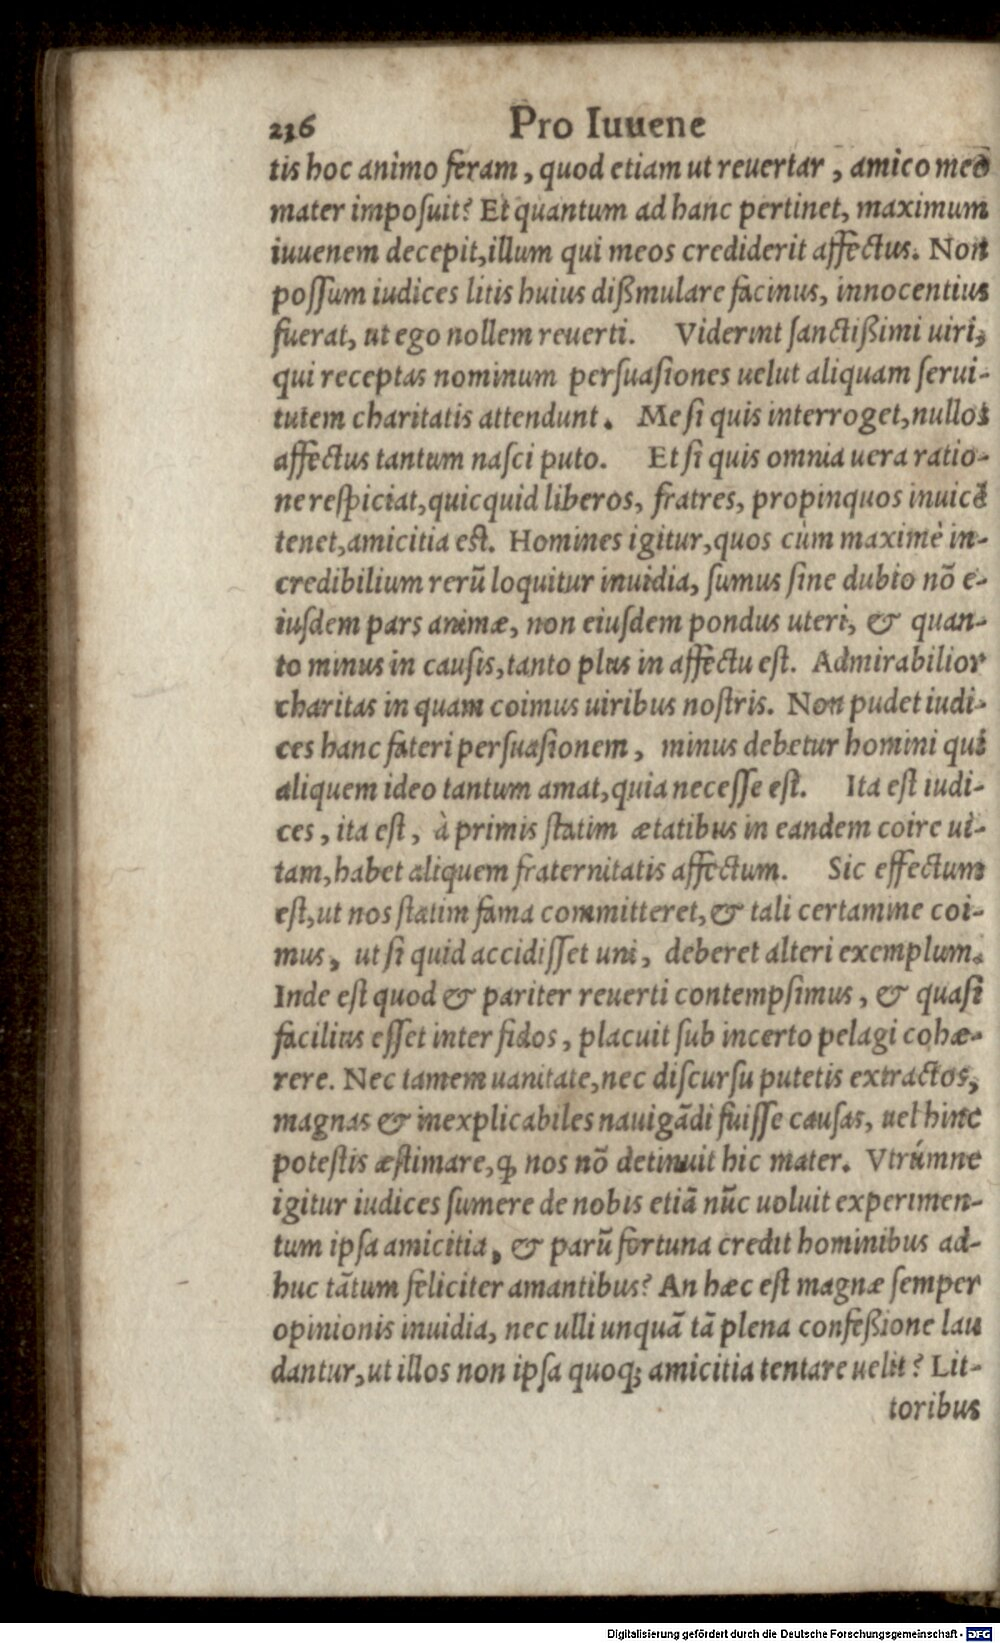 236 Pro Iuuene
tis hoc animo feram, quod etiam ut reuertar, amico meo
mater imposuit? Et quantum ad hanc pertinet, maximum
iuuenem decepit, illum qui meos crediderit affectus. Non
possum iudices litis huius dißmulare facinus, innocentius
fuerat, ut ego nollem reuerti. Viderint sanctißimi uiri,
qui receptas nominum persuasiones uelut aliquam serui-
tutem charitatis attendunt. Me si quis interroget, nullos
affectus tantum nasci puto. Et si quis omnia uera ratio-
ne respiciat, quicquid liberos, fratres, propinquos inuicē
tenet, amicitia est. Homines igitur, quos cùm maximè in-
credibilium rerū loquitur inuidia, sumus sine dubio nō e-
iusdem pars animæ, non eiusdem pondus uteri, & quan-
to minus in causis, tanto plus in affectu est. Admirabilior
charitas in quam coimus uiribus nostris. Non pudet iudi-
ces hanc fateri persuasionem, minus debetur homini qui
aliquem ideo tantum amat, quia necesse est. Ita est iudi-
ces, ita est, à primis statim ætatibus in eandem coire ui-
tam, habet aliquem fraternitatis affectum. Sic effectum
est, ut nos statim fama committeret, & tali certamine coi-
mus, ut si quid accidisset uni, deberet alteri exemplum.
Inde est quod & pariter reuerti contempsimus, & quasi
facilius esset inter fidos, placuit sub incerto pelagi cohæ-
rere. Nec tamem uanitate, nec discursu putetis extractos,
magnas & inexplicabiles nauigādi fuisse causas, uel hinc
potestis æstimare, ꝙ nos nō detinuit hic mater. Vtrúmne
igitur iudices sumere de nobis etiā nūc uoluit experimen-
tum ipsa amicitia, & parū fortuna credit hominibus ad-
huc tātum feliciter amantibus? An hæc est magnæ semper
opinionis inuidia, nec ulli unquā tā plena confeßione lau
dantur, ut illos non ipsa quoq; amicitia tentare uelit? Lit-
toribus
Digitalisierung gefördert durch die Deutsche Forschungsgemeinschaft - DFG